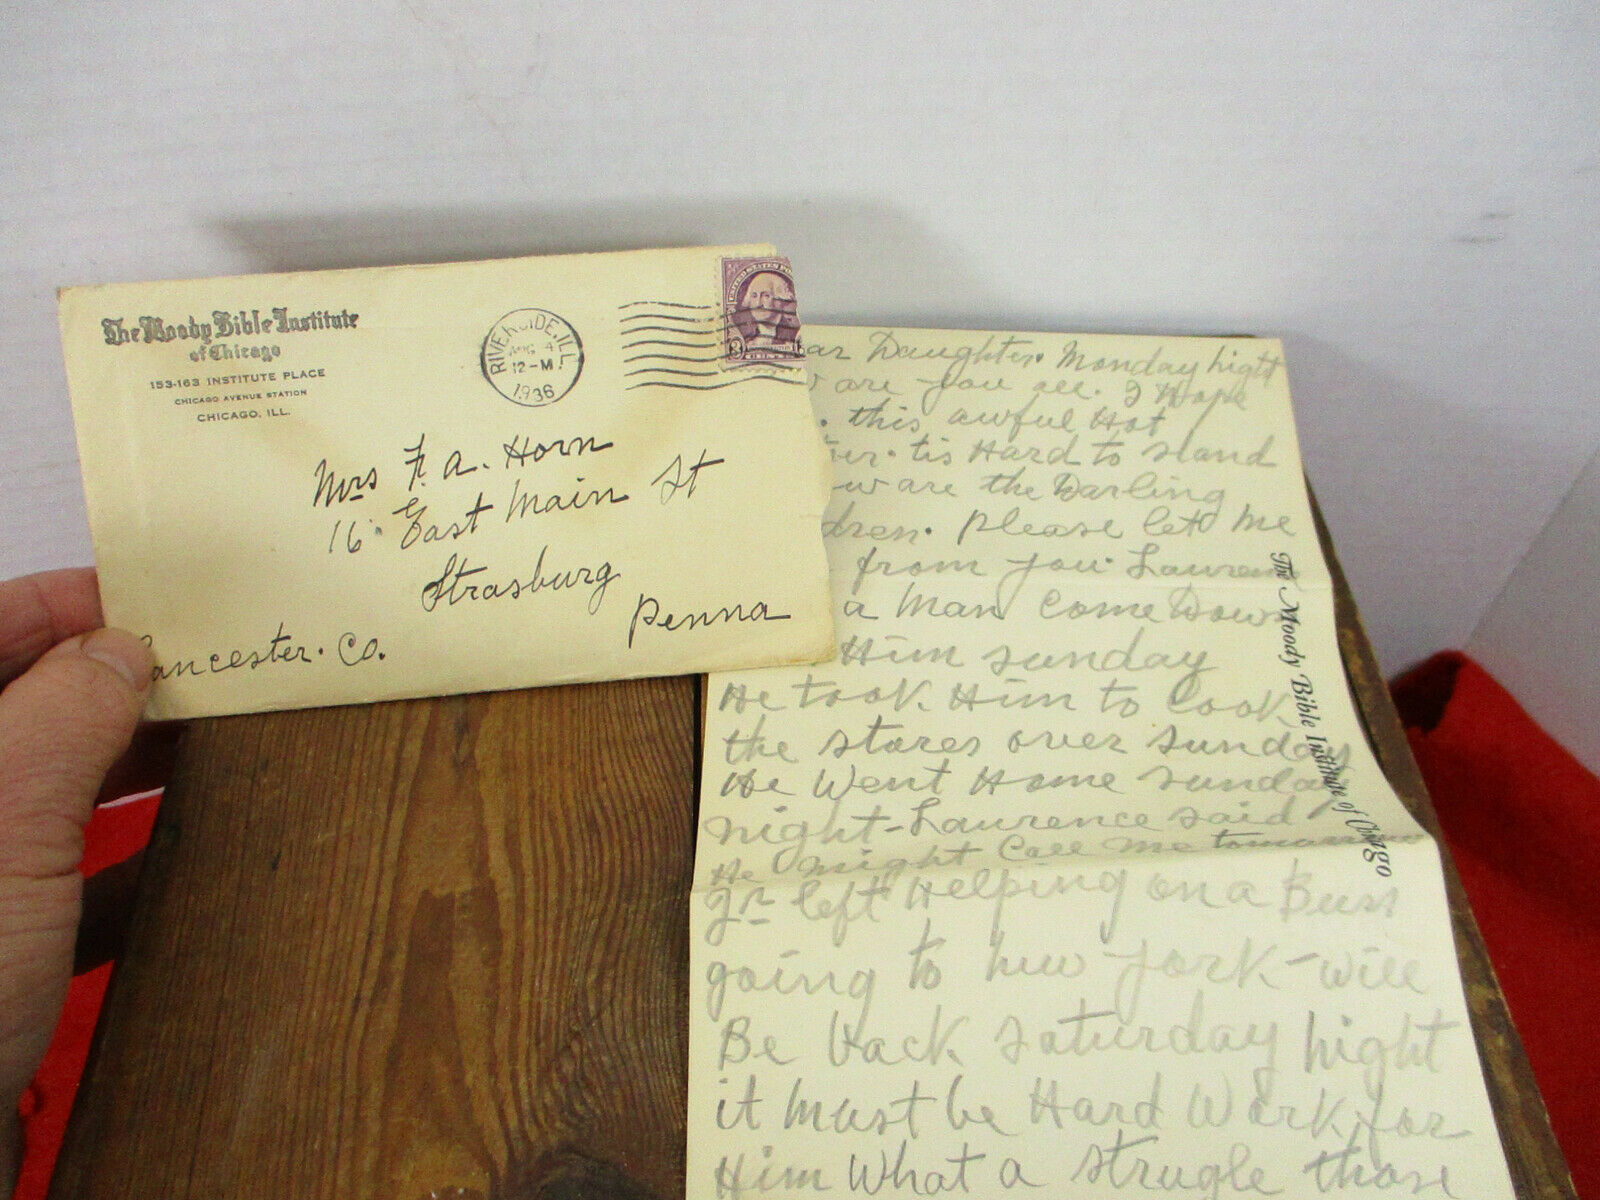 The Moody Bible Institute
of Chicago
153-163 INSTITUTE PLACE
CHICAGO AVENUE STATION
CHICAGO, ILL.
RIVERSIDE, ILL.
AUG 4
12-M
1936
UNITED STATES
3
Mrs F. A. Horn
16 East Main St
Strasburg
Penna
Lancester. Co.
ar Daughter. Monday hight
are you all. I Hope
. this awful Hot
tis Hard to stand
are the Darling
dren. please let me
from you. Laurence
a man Come Down
Him sunday
He took Him to look
the stores over sunday
He Went Home sunday
night-Laurence said
He might Call me tomorrow
Jr left Helping on a Buss
going to new york-will
Be back saturday hight
it must be Hard Work for
Him What a strugle those
The Moody Bible Institute of Chicago